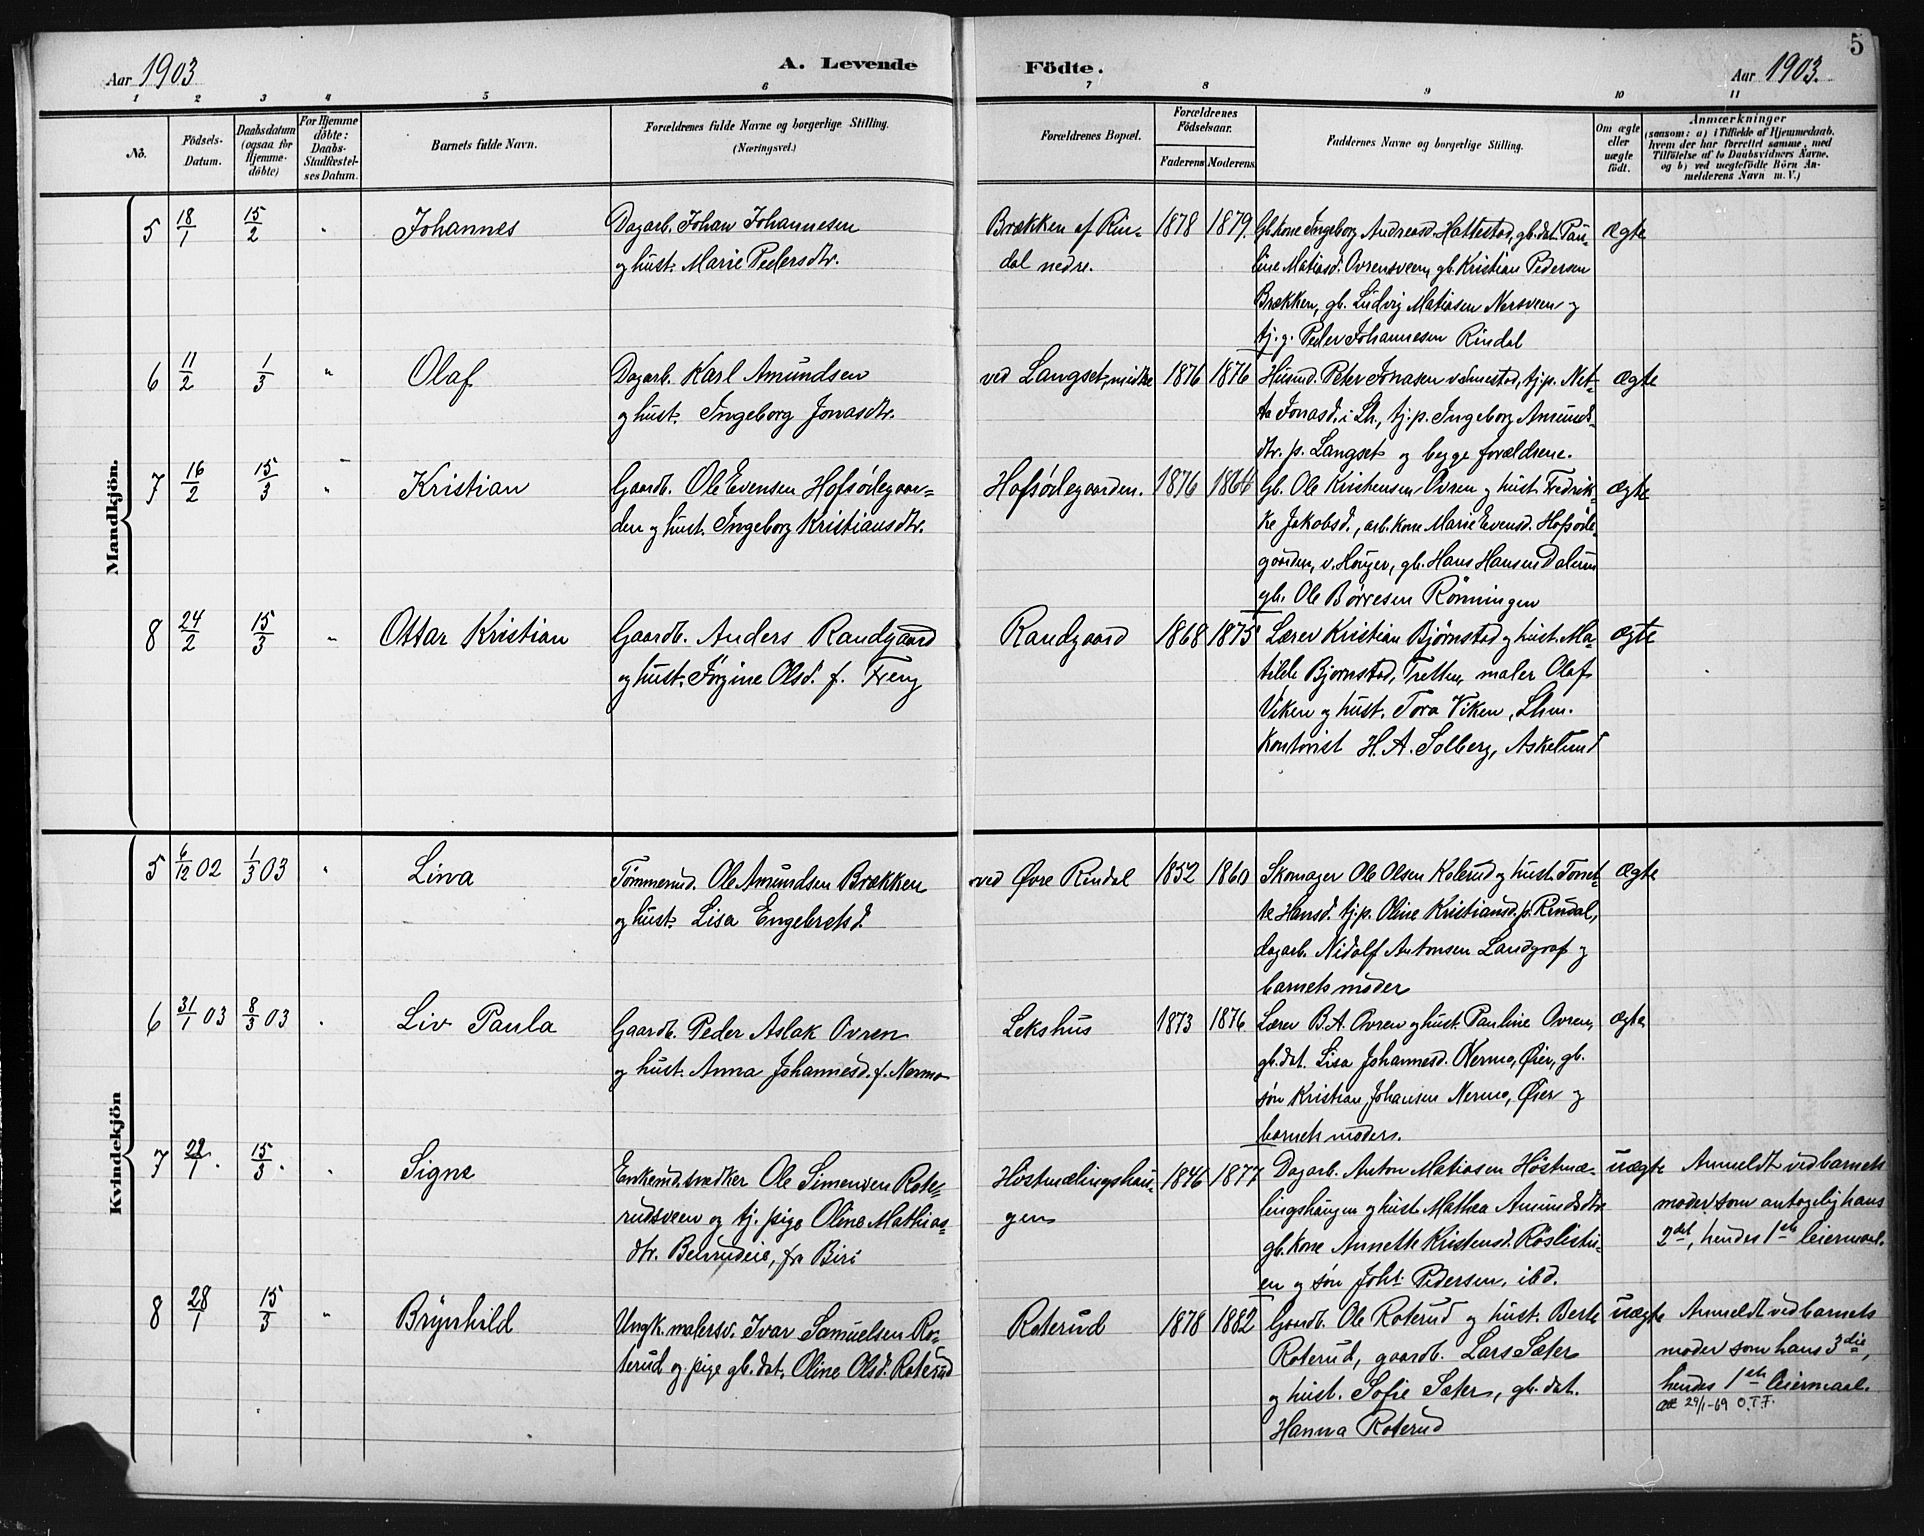 5
Aar 1903
A. Levende
Födte.
Aar 1903.
1 2 3 4 5 6 7 8 9 10 11
No.
Födsels-Datum.
Daabsdatum (ogsaa for Hjemme-døbte)
For Hjemme døbte: Daabs-Stadfæstelses Datum.
Barnets fulde Navn.
Forældrenes fulde Navne og borgerlige Stilling. (Næringsvei.)
Forældrenes Bopæl.
Forældrenes Födselsaar.
Faderens Moderens
Faddernes Navne og borgerlige Stilling.
Om ægte eller uægte födt.
Anmærkninger
(saasom: a) i Tilfælde af Hjemmedaab,
hvem der har forrettet samme, med
Tilföielse af to Daabsvidners Navne,
og b) ved uægtefödte Börn An-
melderens Navn m. V.)
Mandkjön.
5 18/1 15/2 " Johannes
Dagarb. Johan Johannesen
og hust. Marie Pedersdtr.
Brækken af Rin-
dal nedre.
1878 1879.
Gb.kone Ingeborg Andreasd. Hattestad, gb.dat. Pau-
line Matiasd. Ovrensveen, gb. Kristian Pedersen
Brækken, gb. Ludvig Matiasen Nersveen og
tj. g. Peder Johannesen Rindal
ægte
6 11/2 1/3 " Olaf
Dagarb. Karl Amundsen
og hust. Ingeborg Jonasdtr.
ved Langset, midtre
1876 1876
Husmd. Peter Jonasen v. Smestad, tj.p. Net-
ta Jonasd. i Lh., tj.p. Ingeborg Amunds-
dtr. p. Langset og begge forældrene.
ægte
7 16/2 15/3 " Kristian
Gaardb. Ole Evensen Hofsölegaar-
den og hust. Ingeborg Kristiansdtr.
Hofsölegaarden.
1876 1864
Gb. Ole Kristensen Ovren og hust. Fredrik-
ke Jakobsd., arb. kone Marie Evensd. Hofsöle-
gaarden, gb. Hans Hansen Dalum
gb. Ole Børresen Rönningen
ægte
8 24/2 15/3 " Ottar Kristian
Gaardb. Anders Randgaard
og hust. Jørgine Olsd. f. Freng
Randgaard
1868 1875
Lærer Kristian Bjørnstad og hust. Ma-
tilde Bjørnstad, Tretten, maler Olaf
Viken og hust. Tora Viken, Lhm.
Kontorist H. A. Solberg, Askelund
ægte
Kvindekjön
5 6/12 02 1/3 03 " Lina
Tømmermd. Ole Amundsen Brækken
og hust. Lisa Engebretsd.
ved Øvre Rindal
1852 1860
Skomager Ole Olsen Kolerud og hust. Tonet-
te Hansd. tj.p. Oline Kristiansd. p. Rindal,
dagarb. Nidolf Antonsen Landgraf og
barnets moder
ægte
6 31/1 03 8/3 03 . Liv Paula
Gaardb. Peder Aslak Ovren
og hust. Anna Johannesd. f. Nermo
Lekshus
1873 1876
Lærer B.A. Ovren og hust. Pauline Ovren,
gb.dat. Lisa Johannesd. Nermo, Øier, gb.
søn Kristian Johansen Nermo, Øier og
barnets moder.
ægte
7 22/1. 15/3. . Signe
Enkemd. snedker Ole Simensen Rote-
rudsveen og tj. pige Oline Mathias-
dtr. Benrudeie, fr. Biri
Höstmælingshau-
gen
1846 1877
Dagarb. Anton Matiasen Höstmæ-
lingshaugen og hust. Mathea Amundsdtr
gb. kone Annette Kristensd. Röslistu-
en og søn Joh. Pedersen, ibd.
uægte
Anmeldt ved barnets
moder som antagelig hans
2det, hendes 1ste leiermaal.
8 28/1 15/3 " Brynhild
Ungk. malersv. Ivar Samuelsen Ro-
terud og pige gb.dat. Oline Olsd. Roterud
Roterud
1878 1882
Gaardb. Ole Roterud og hust. Berte
Roterud, gaardb. Lars Sæter
og hust. Sofie Sæter, gb. dat.
Hanna Roterud
uægte
Anmeldt ved barnets
moder som hans 3die,
hendes 1ste leiermaal.
29/1-69 O.T.F.